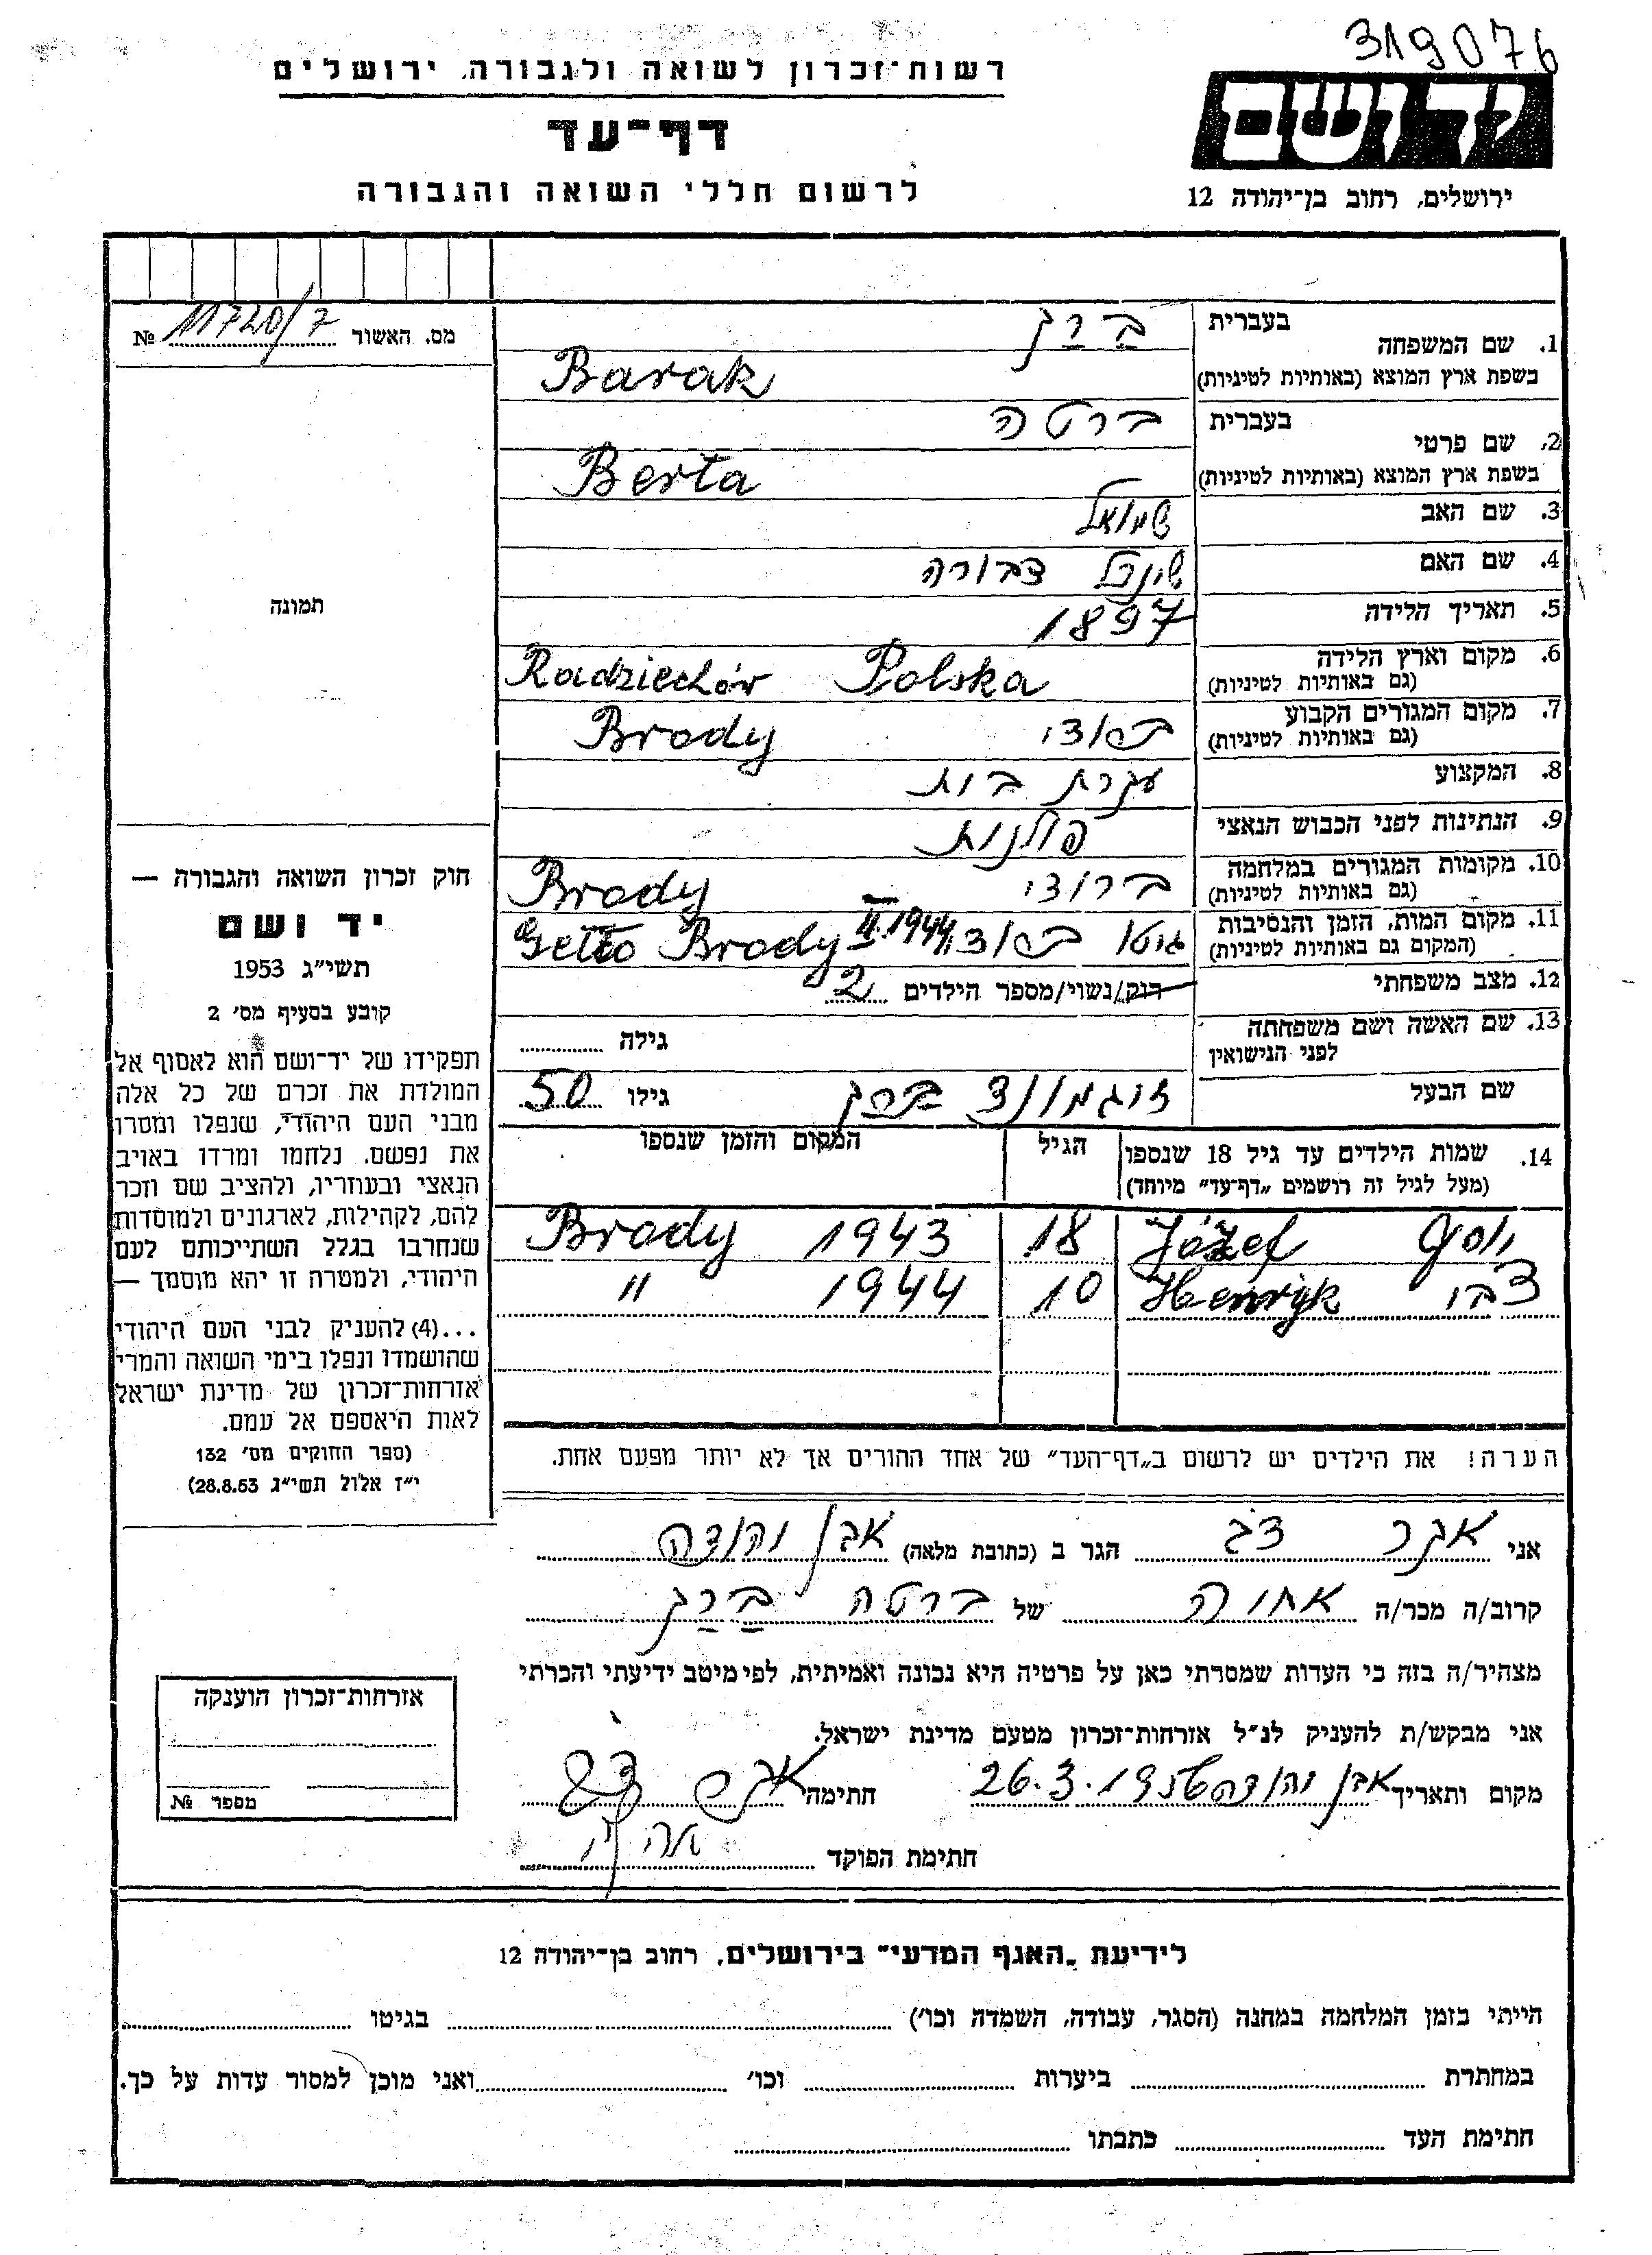 319076
רשות־זכרון לשואה ולגבורה, ירושלים
יד ושם
דף־עד
לרשום חללי השואה והגבורה
ירושלים, רחוב בן־יהודה 12
מס. האשור 11720/7 №
1. שם המשפחה בעברית בָרַק
בשפת ארץ המוצא (באותיות לטיניות) Barak
2. שם פרטי בעברית ברטה
בשפת ארץ המוצא (באותיות לטיניות) Berta
3. שם האב שמואל
4. שם האם שינדל דבורה
5. תאריך הלידה 1897
6. מקום וארץ הלידה (גם באותיות לטיניות) Radziechów Polska
7. מקום המגורים הקבוע (גם באותיות לטיניות) ברודי Brody
8. המקצוע עקרת בית
9. הנתינות לפני הכבוש הנאצי פולנית
10. מקומות המגורים במלחמה (גם באותיות לטיניות) ברודי Brody
11. מקום המות, הזמן והנסיבות (המקום גם באותיות לטיניות) גיטו ברודי II.1944 Getto Brody
12. מצב משפחתי רוק/נשוי/מספר הילדים 2
13. שם האשה ושם משפחתה לפני הנישואין גילה
שם הבעל זיגמונד ברק גילו 50
14. שמות הילדים עד גיל 18 שנספו (מעל לגיל זה רושמים „דף־עד״ מיוחד) הגיל המקום והזמן שנספו
יוסף Józef 18 1943 Brody
צבי Henryk 10 1944 "
הערה! את הילדים יש לרשום ב„דף־העד״ של אחד ההורים אך לא יותר מפעם אחת.
תמונה
חוק זכרון השואה והגבורה —
יד ושם
תשי״ג 1953
קובע בסעיף מס׳ 2
תפקידו של יד־ושם הוא לאסוף אל
המולדת את זכרם של כל אלה
מבני העם היהודי, שנפלו ומסרו
את נפשם, נלחמו ומרדו באויב
הנאצי ובעוזריו, ולהציב שם וזכר
להם, לקהילות, לארגונים ולמוסדות
שנחרבו בגלל השתייכותם לעם
היהודי, ולמטרה זו יהא מוסמך —
...(4) להעניק לבני העם היהודי
שהושמדו ונפלו בימי השואה והמרי
אזרחות־זכרון של מדינת ישראל
לאות היאספם אל עמם.
(ספר החוקים מס׳ 132
י״ז אלול תשי״ג 28.8.53)
אני הגר ב (כתובת מלאה) אבן יהודה
קרוב/ה מכר/ה של ברטה בָרַק
מצהיר/ה בזה כי העדות שמסרתי כאן על פרטיה היא נכונה ואמיתית, לפי מיטב ידיעתי והכרתי
אני מבקש/ת להעניק לנ״ל אזרחות־זכרון מטעם מדינת ישראל.
מקום ותאריך אבן יהודה 26.3.195 חתימה
חתימת הפוקד
אזרחות־זכרון הוענקה
מספר №
לידיעת „האגף המדעי״ בירושלים, רחוב בן־יהודה 12
הייתי בזמן המלחמה במחנה (הסגר, עבודה, השמדה וכו׳) בגיטו
במחתרת ביערות וכו׳ ואני מוכן למסור עדות על כך.
חתימת העד כתבתו